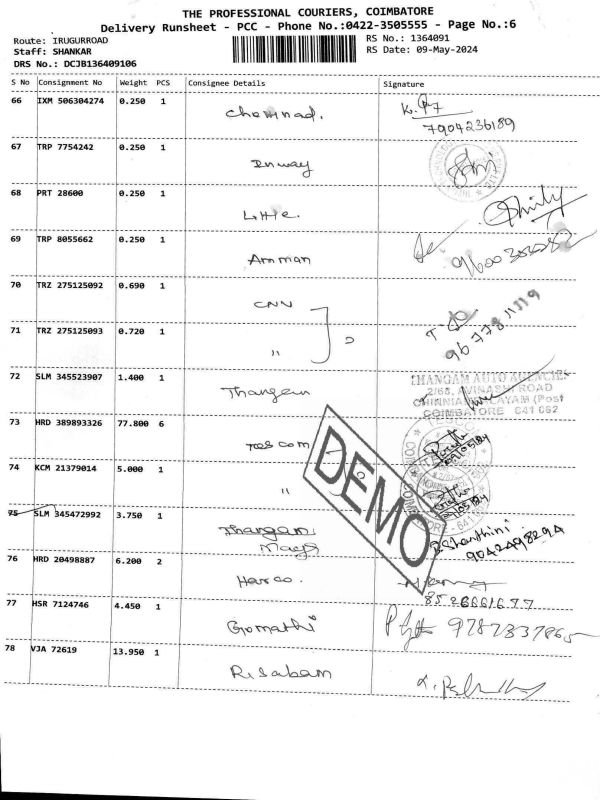 THE PROFESSIONAL COURIERS, COIMBATORE
Delivery Runsheet - PCC - Phone No.:0422-3505555 - Page No.:6
Route: IRUGURROAD
RS No.: 1364091
Staff: SHANKAR
RS Date: 09-May-2024
DRS No.: DCJB136409106
S No Consignment No Weight PCS Consignee Details Signature
66 IXM 506304274 0.250 1 Chettinad.
7904236189
67 TRP 7754242 0.250 1 Inway
68 PRT 28600 0.250 1 Little
69 TRP 8055662 0.250 1 Amman
70 TRZ 275125092 0.690 1 CNN
71 TRZ 275125093 0.720 1 "
72 SLM 345523907 1.400 1 Thangam
THANGAM AUTO AGENCIES
2/65, AVINASHI ROAD
CHINNIAMPALAYAM (Post
COIMBATORE 641 062
73 HRD 389893326 77.800 6
74 KCM 21379014 5.000 1 "
DEMO
75 SLM 345472992 3.750 1 Thangam
B. Shanthini
9042498294
76 HRD 20498887 6.200 2 Harco.
8526661677
77 HSR 7124746 4.450 1 Gomathi
78 VJA 72619 13.950 1 Risabam